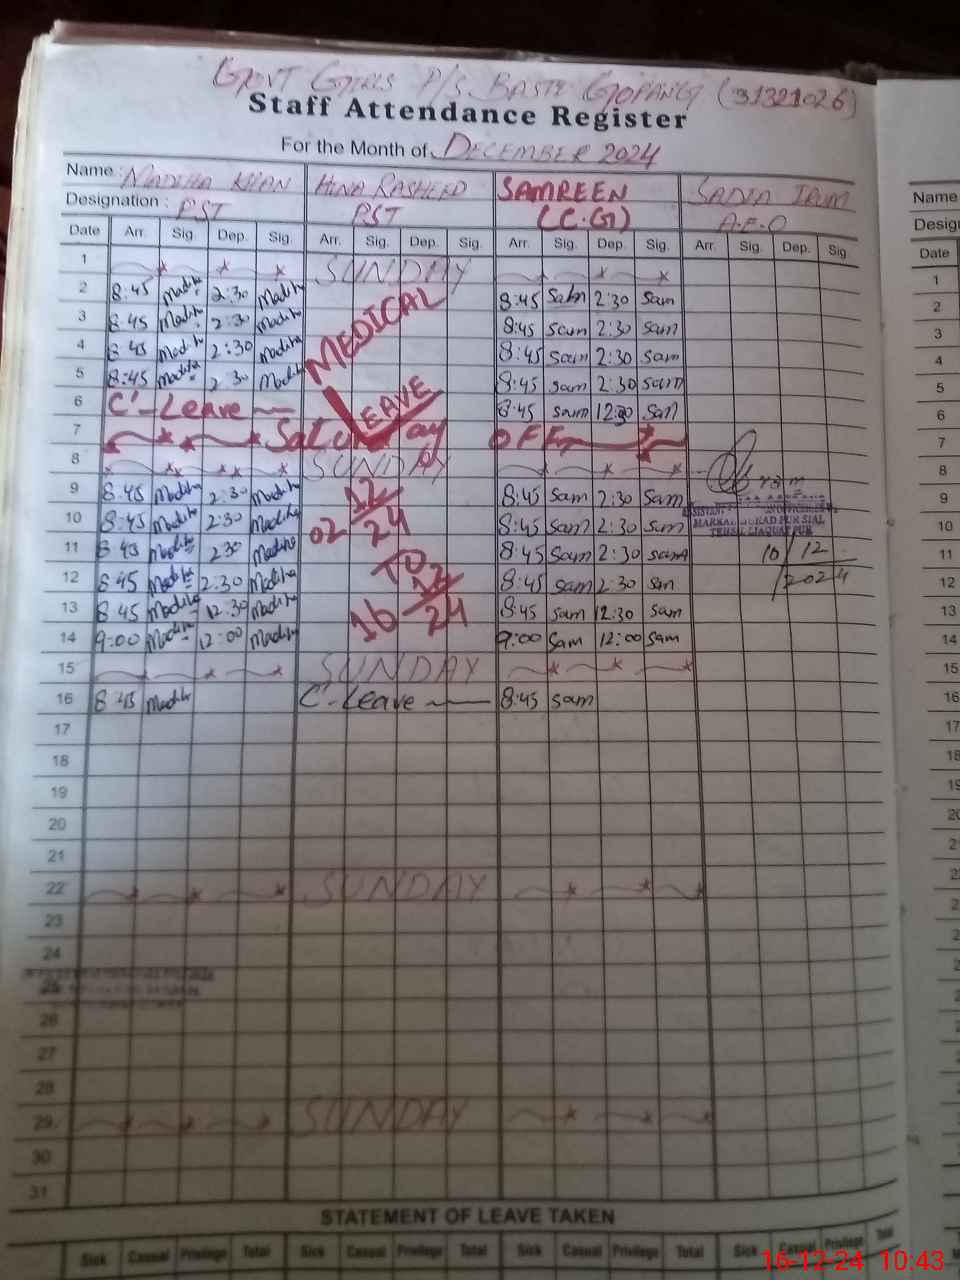 GOVT GIRLS P/S. BASTI GOPANG (31321026)
Staff Attendance Register
For the Month of DECEMBER 2024
Name : MADIHA KHAN HINA RASHEED SAMREEN SADIA IRUM
Designation : PST PST (C.G) A.E.O
Date Arr. Sig. Dep. Sig. Arr. Sig. Dep. Sig. Arr. Sig. Dep. Sig. Arr. Sig. Dep. Sig.
1 SUNDAY
2 8:45 Madiha 2:30 Madiha 8:45 Sam 2:30 Sam
3 8:45 Madiha 2:30 Madiha MEDICAL 8:45 Sam 2:30 Sam
4 8:45 Madiha 2:30 Madiha 8:45 Sam 2:30 Sam
5 8:45 Madiha 2:30 Madiha LEAVE 8:45 Sam 2:30 Sam
6 C'-Leave 8:45 Sam 12:30 Sam
7 Saturday OFF
8 SUNDAY
9 8:45 Madiha 2:30 Madiha 12 8:45 Sam 2:30 Sam
10 8:45 Madiha 2:30 Madiha 02 24 8:45 Sam 2:30 Sam MARKAZ MURAD PUR SIAL
TEHSIL LIAQUAT PUR
11 8:45 Madiha 2:30 Madiha TO 8:45 Sam 2:30 Sam 10/12
12 8:45 Madiha 2:30 Madiha 12 8:45 Sam 2:30 Sam /2024
13 8:45 Madiha 12:30 Madiha 16 24 8:45 Sam 12:30 Sam
14 9:00 Madiha 12:00 Madiha 9:00 Sam 12:00 Sam
15 SUNDAY
16 8:45 Madiha C'-Leave 8:45 Sam
17
18
19
20
21
22 SUNDAY
23
24
25
26
27
28
29 SUNDAY
30
31
STATEMENT OF LEAVE TAKEN
Sick Casual Privilege Total Sick Casual Privilege Total Sick Casual Privilege Total Sick Casual Privilege Total
16-12-24 10:43
Name
Date
1
2
3
4
5
6
7
8
9
10
11
12
13
14
15
16
17
18